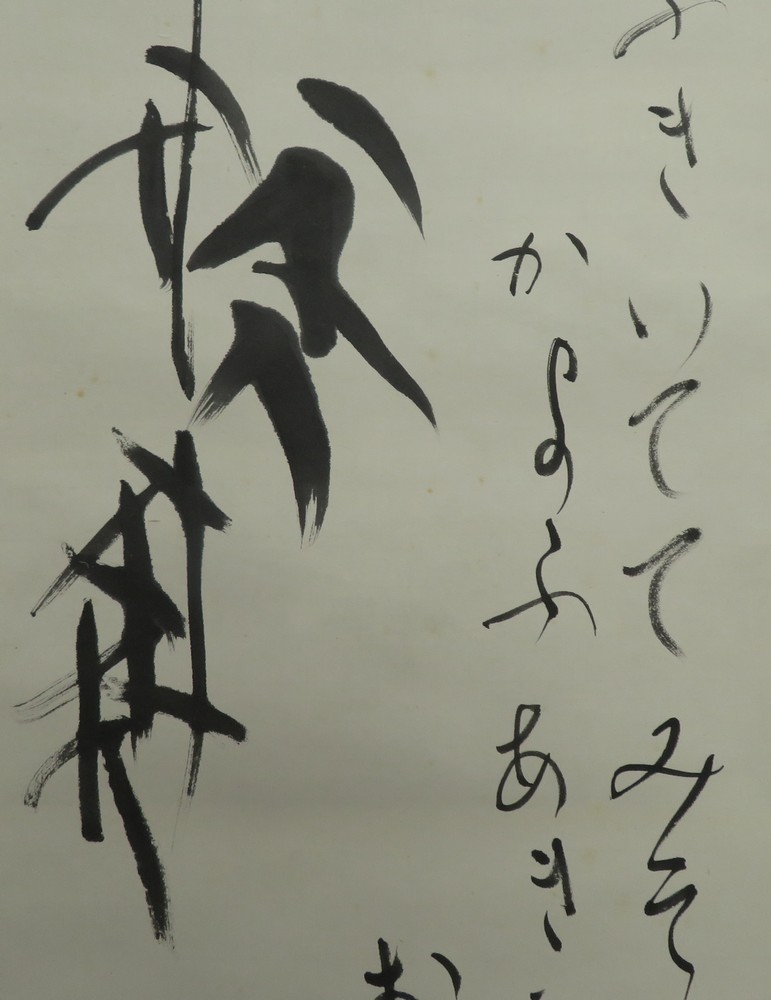 きいててみそ
かよふあき
お